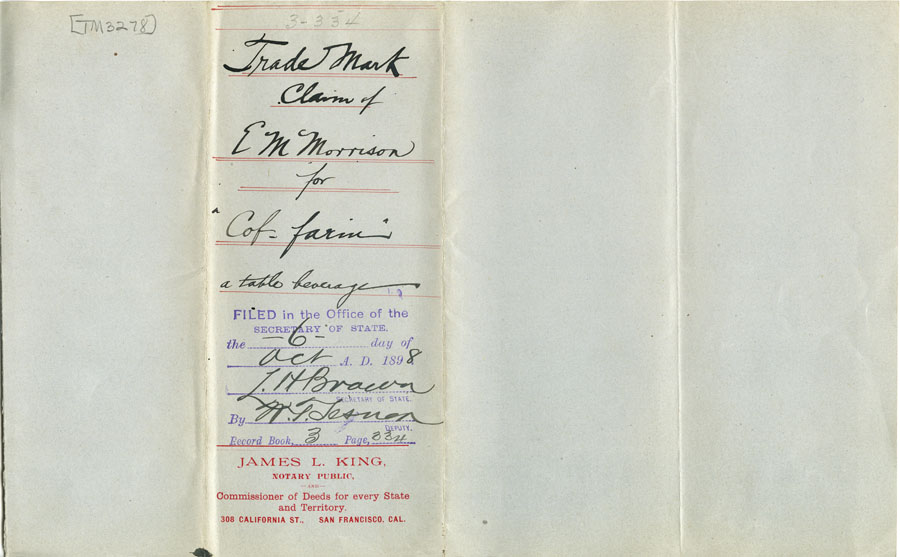 [TM3278]
3-334
Trade Mark
Claim of
E M Morrison
for
"Cof-farin"
a table beverage
FILED in the Office of the
SECRETARY OF STATE.
the -6- day of
Oct A. D. 1898
L. H Brown
SECRETARY OF STATE.
By W. T.
DEPUTY.
Record Book, 3 Page, 334
JAMES L. KING,
NOTARY PUBLIC,
—AND—
Commissioner of Deeds for every State
and Territory.
308 CALIFORNIA ST., SAN FRANCISCO, CAL.